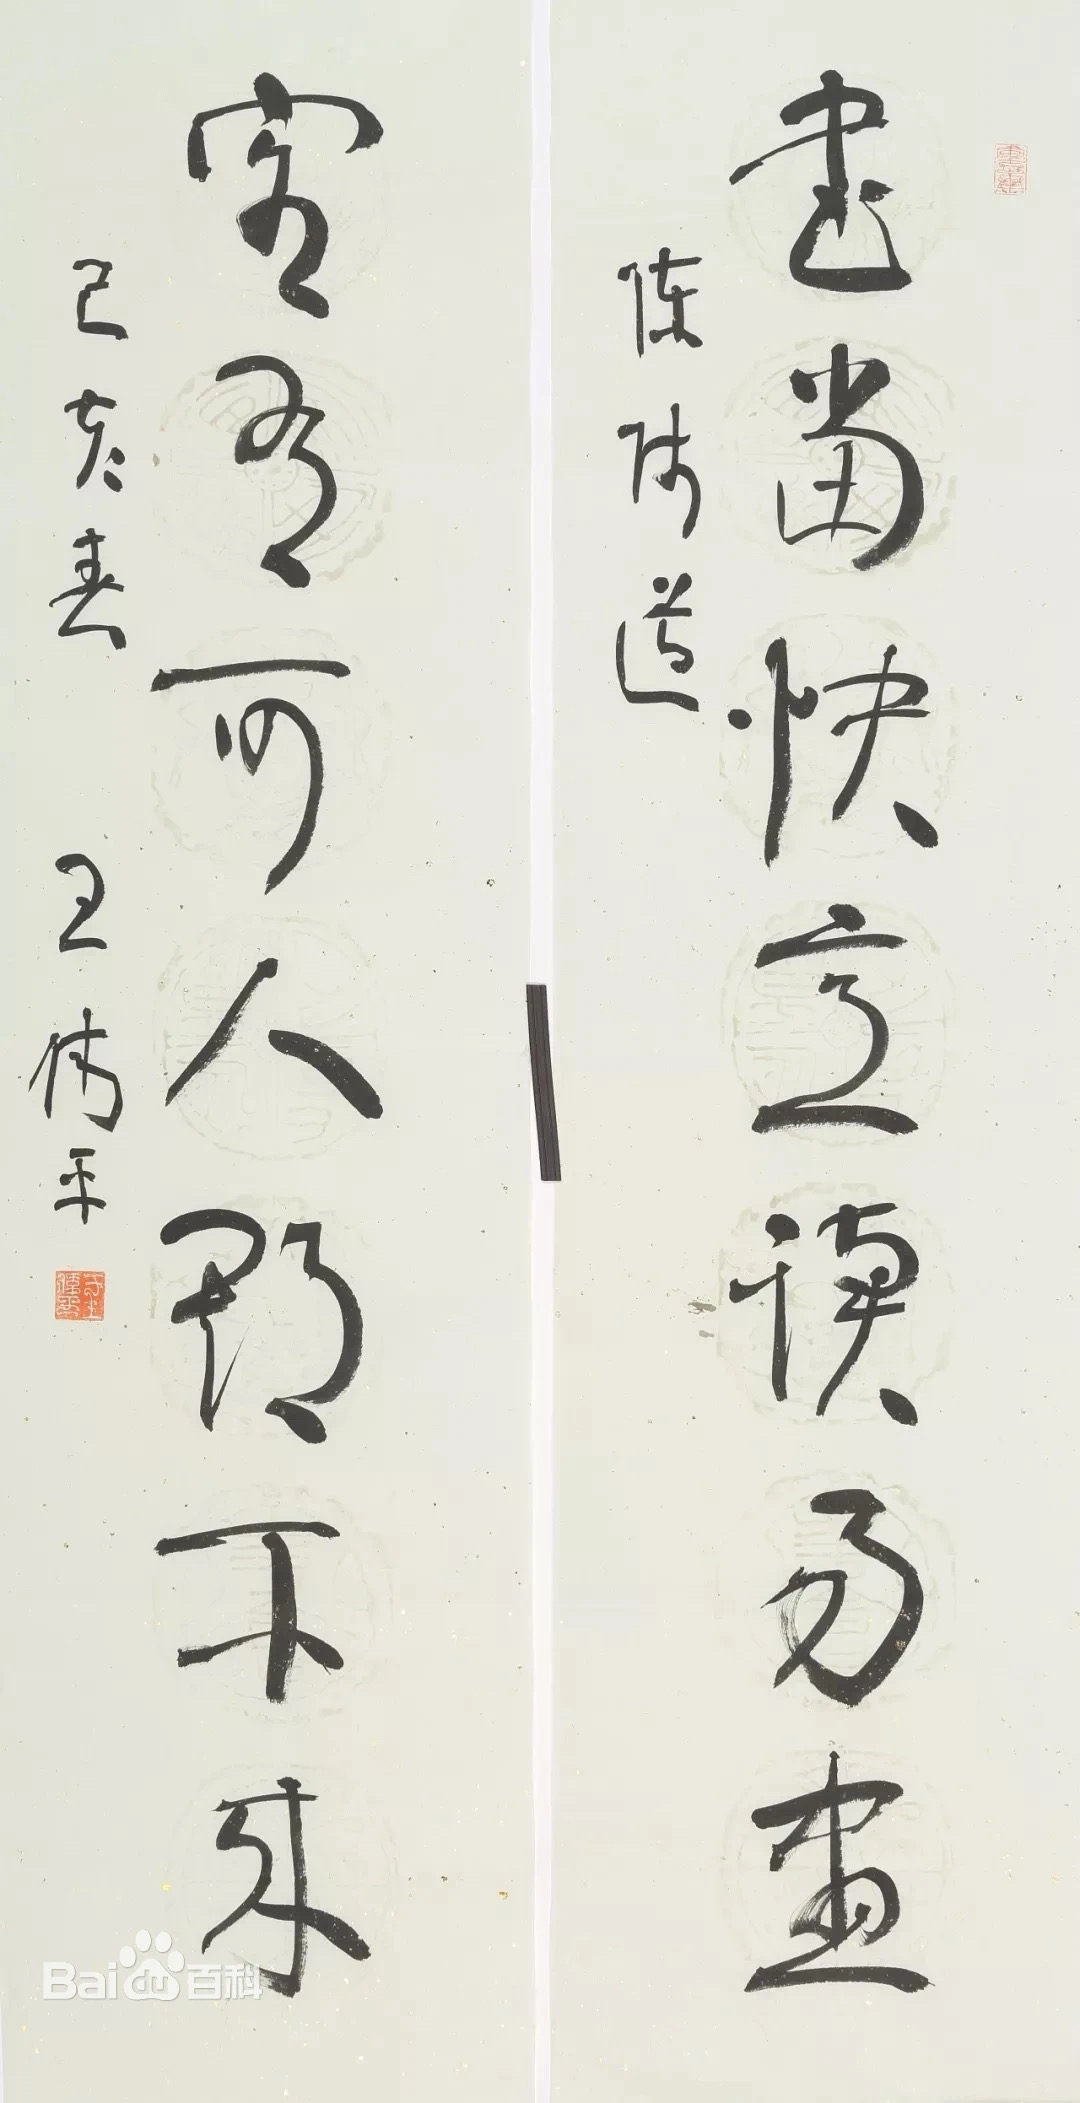 書當快意讀易盡
陳師道
客有可人期不來
己亥春 王偉平
Bai 百科